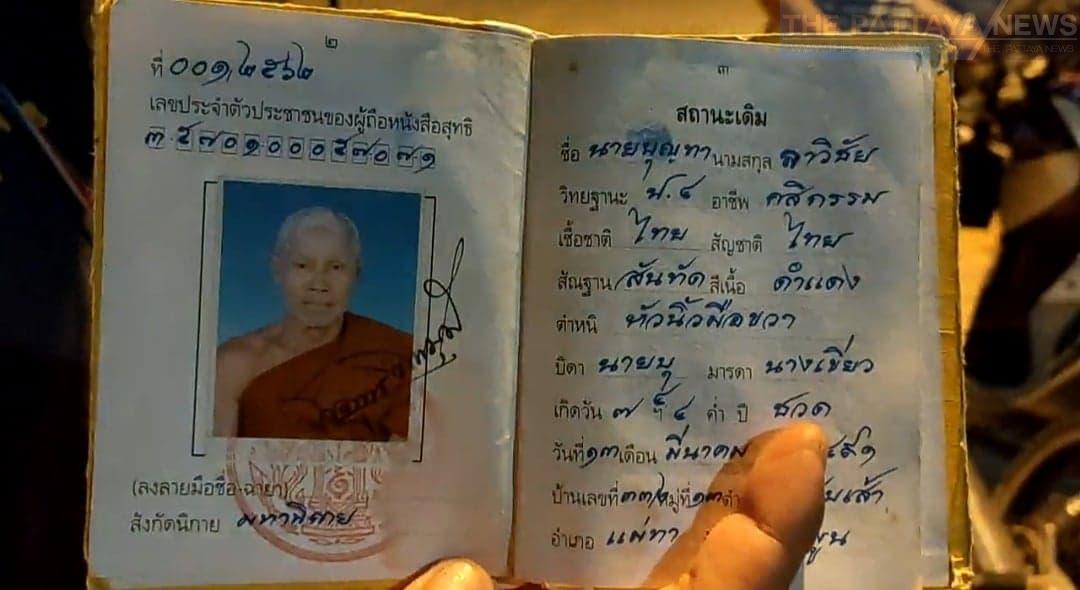 THE PATTAYA NEWS
THE PATTAYA NEWS
๒
ที่ ๐๐๑/๒๕๖๒
เลขประจำตัวประชาชนของผู้ถือหนังสือสุทธิ
๓ ๕๗๐๑ ๐๐๐๕๗ ๐๗ ๑
(ลงลายมือชื่อ-ฉายา)
สังกัดนิกาย มหานิกาย
๓
สถานะเดิม
ชื่อ นายบุญทา นามสกุล ลาวิชัย
วิทยฐานะ ป.๔ อาชีพ กสิกรรม
เชื้อชาติ ไทย สัญชาติ ไทย
สัณฐาน สันทัด สีเนื้อ ดำแดง
ตำหนิ หัวนิ้วมือขวา
บิดา นายปุ มารดา นางเขียว
เกิดวัน ๗ ฯ ๔ ค่ำ ปี ชวด
วันที่ ๑๓ เดือน มีนาคม ๔๙๑
บ้านเลขที่ ๓๓/ หมู่ที่ ๑๓
อำเภอ แม่ทา พูน